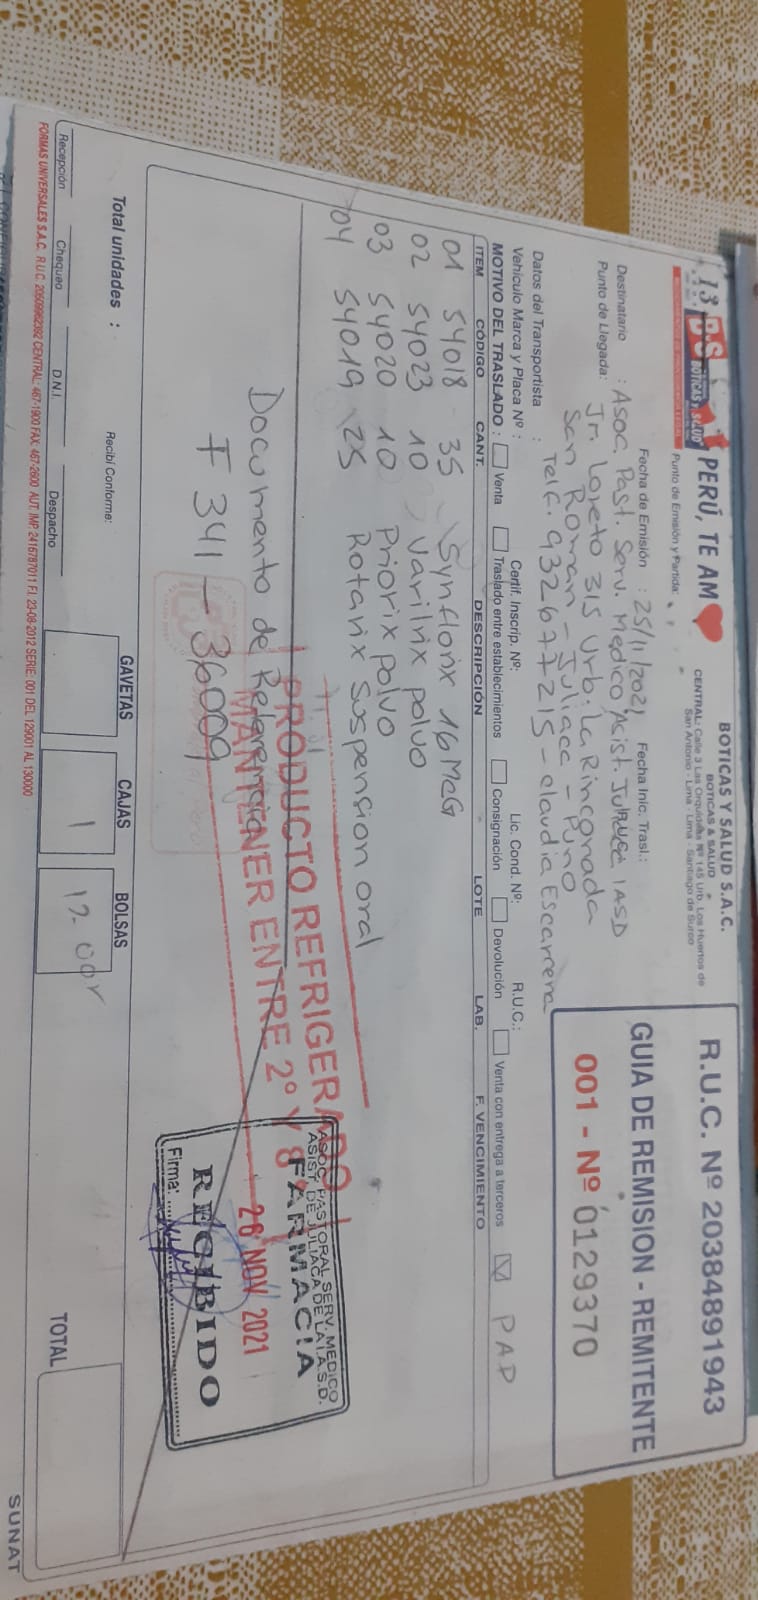 13 BS PERÚ, TE AM❤
BOTICAS y SALUD
Punto de Emisión y Partida:
BOTICAS Y SALUD S.A.C.
BOTICAS & SALUD
CENTRAL: Calle 3 Las Orquídeas Nº 145 Urb. Los Huertos de
San Antonio - Lima - Lima - Santiago de Surco
R.U.C. Nº 20384891943
GUIA DE REMISION - REMITENTE
001 - Nº 0129370
Fecha de Emisión : 25/11/2021 Fecha Inic. Trasl.:
Destinatario : Asoc. Past. Serv. Medico Acist. Juliaca IASD
Punto de Llegada: Jr. Loreto 315 Urb: La Rinconada
San Roman - Juliaca - Puno
Telf. 932677215 - Claudia Escarcena
Datos del Transportista :
Vehículo Marca y Placa Nº : Certif. Inscrip. Nº: Lic. Cond. Nº: R.U.C.:
MOTIVO DEL TRASLADO : Venta Traslado entre establecimientos Consignación Devolución Venta con entrega a terceros PAP
ITEM CÓDIGO CANT. DESCRIPCIÓN LOTE LAB. F. VENCIMIENTO
01 54018 - 35 Synflorix 16 McG
02 54023 10 Varilrix polvo
03 54020 10 Priorix polvo
04 54019 25 Rotarix suspension oral
PRODUCTO REFRIGERADO
MANTENER ENTRE 2° Y 8°
Documento de Referencia
F 341 - 36009
ASOC. PASTORAL SERV. MEDICO
ASIST. DE JULIACA DE LA I.A.S.D.
FARMACIA
26 NOV 2021
RECIBIDO
Firma:
Total unidades :
Recibí Conforme:
GAVETAS CAJAS BOLSAS TOTAL
1
Recepción Chequeo D.N.I. Despacho
FORMAS UNIVERSALES S.A.C. R.U.C. 20509982392 CENTRAL: 467-1900 FAX: 467-2600 AUT. IMP. 2416787011 F.I. 23-08-2012 SERIE: 001 DEL 129001 AL 130000
SUNAT